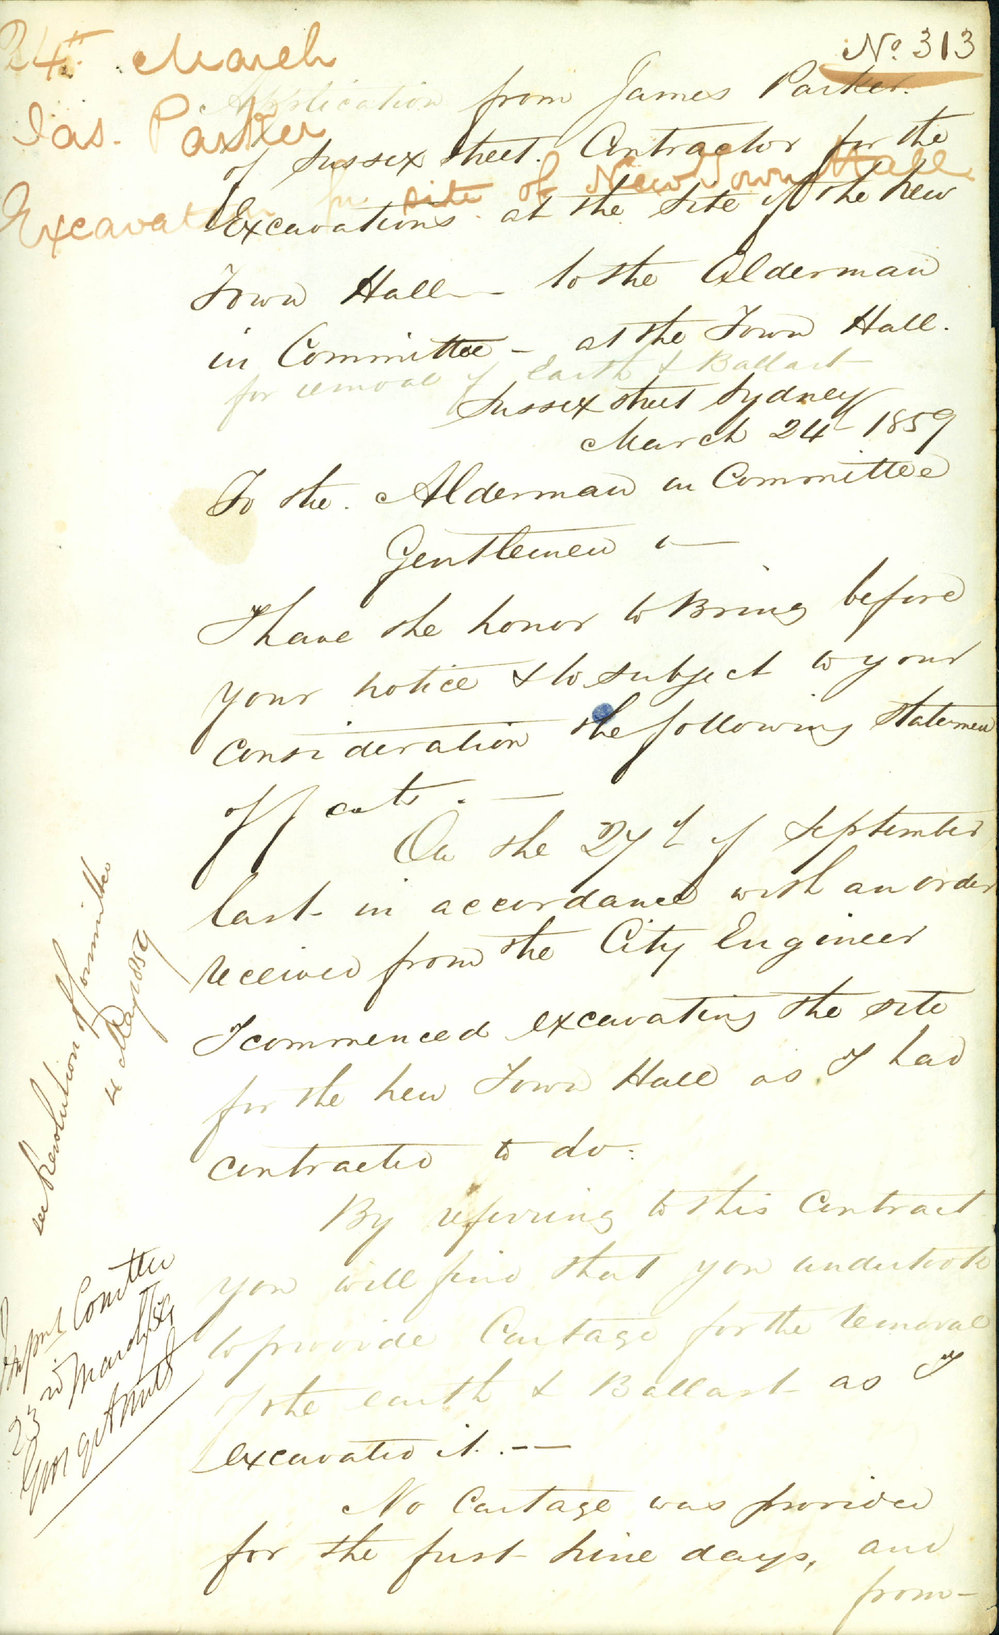 24th March
Jas. Parker
Excavation for site of New Town Hall
No. 313
Application from James Parker.
of Sussex Street. Contractor for the
Excavations at the site of the New
Town Hall — to the Alderman
in Committee — at the Town Hall.
for removal of Earth & Ballast
Sussex street Sydney
March 24th 1859
To the. Alderman in Committee
Gentlemen
I have the honor to Bring before
your notice & to subject to your
consideration the following statemen
of facts. —
On the 27th of September
last in accordance with an order
received from the City Engineer
I commenced excavating the site
for the new Town Hall as I had
contracted to do.
By referring to this Contract
you will find that you undertook
to provide Cartage for the removal
of the earth & Ballast as I
excavated it. —
No Cartage was provided
for the first nine days, and
from —
see Resolution of Committee
4 May 1859
Committee
23rd March